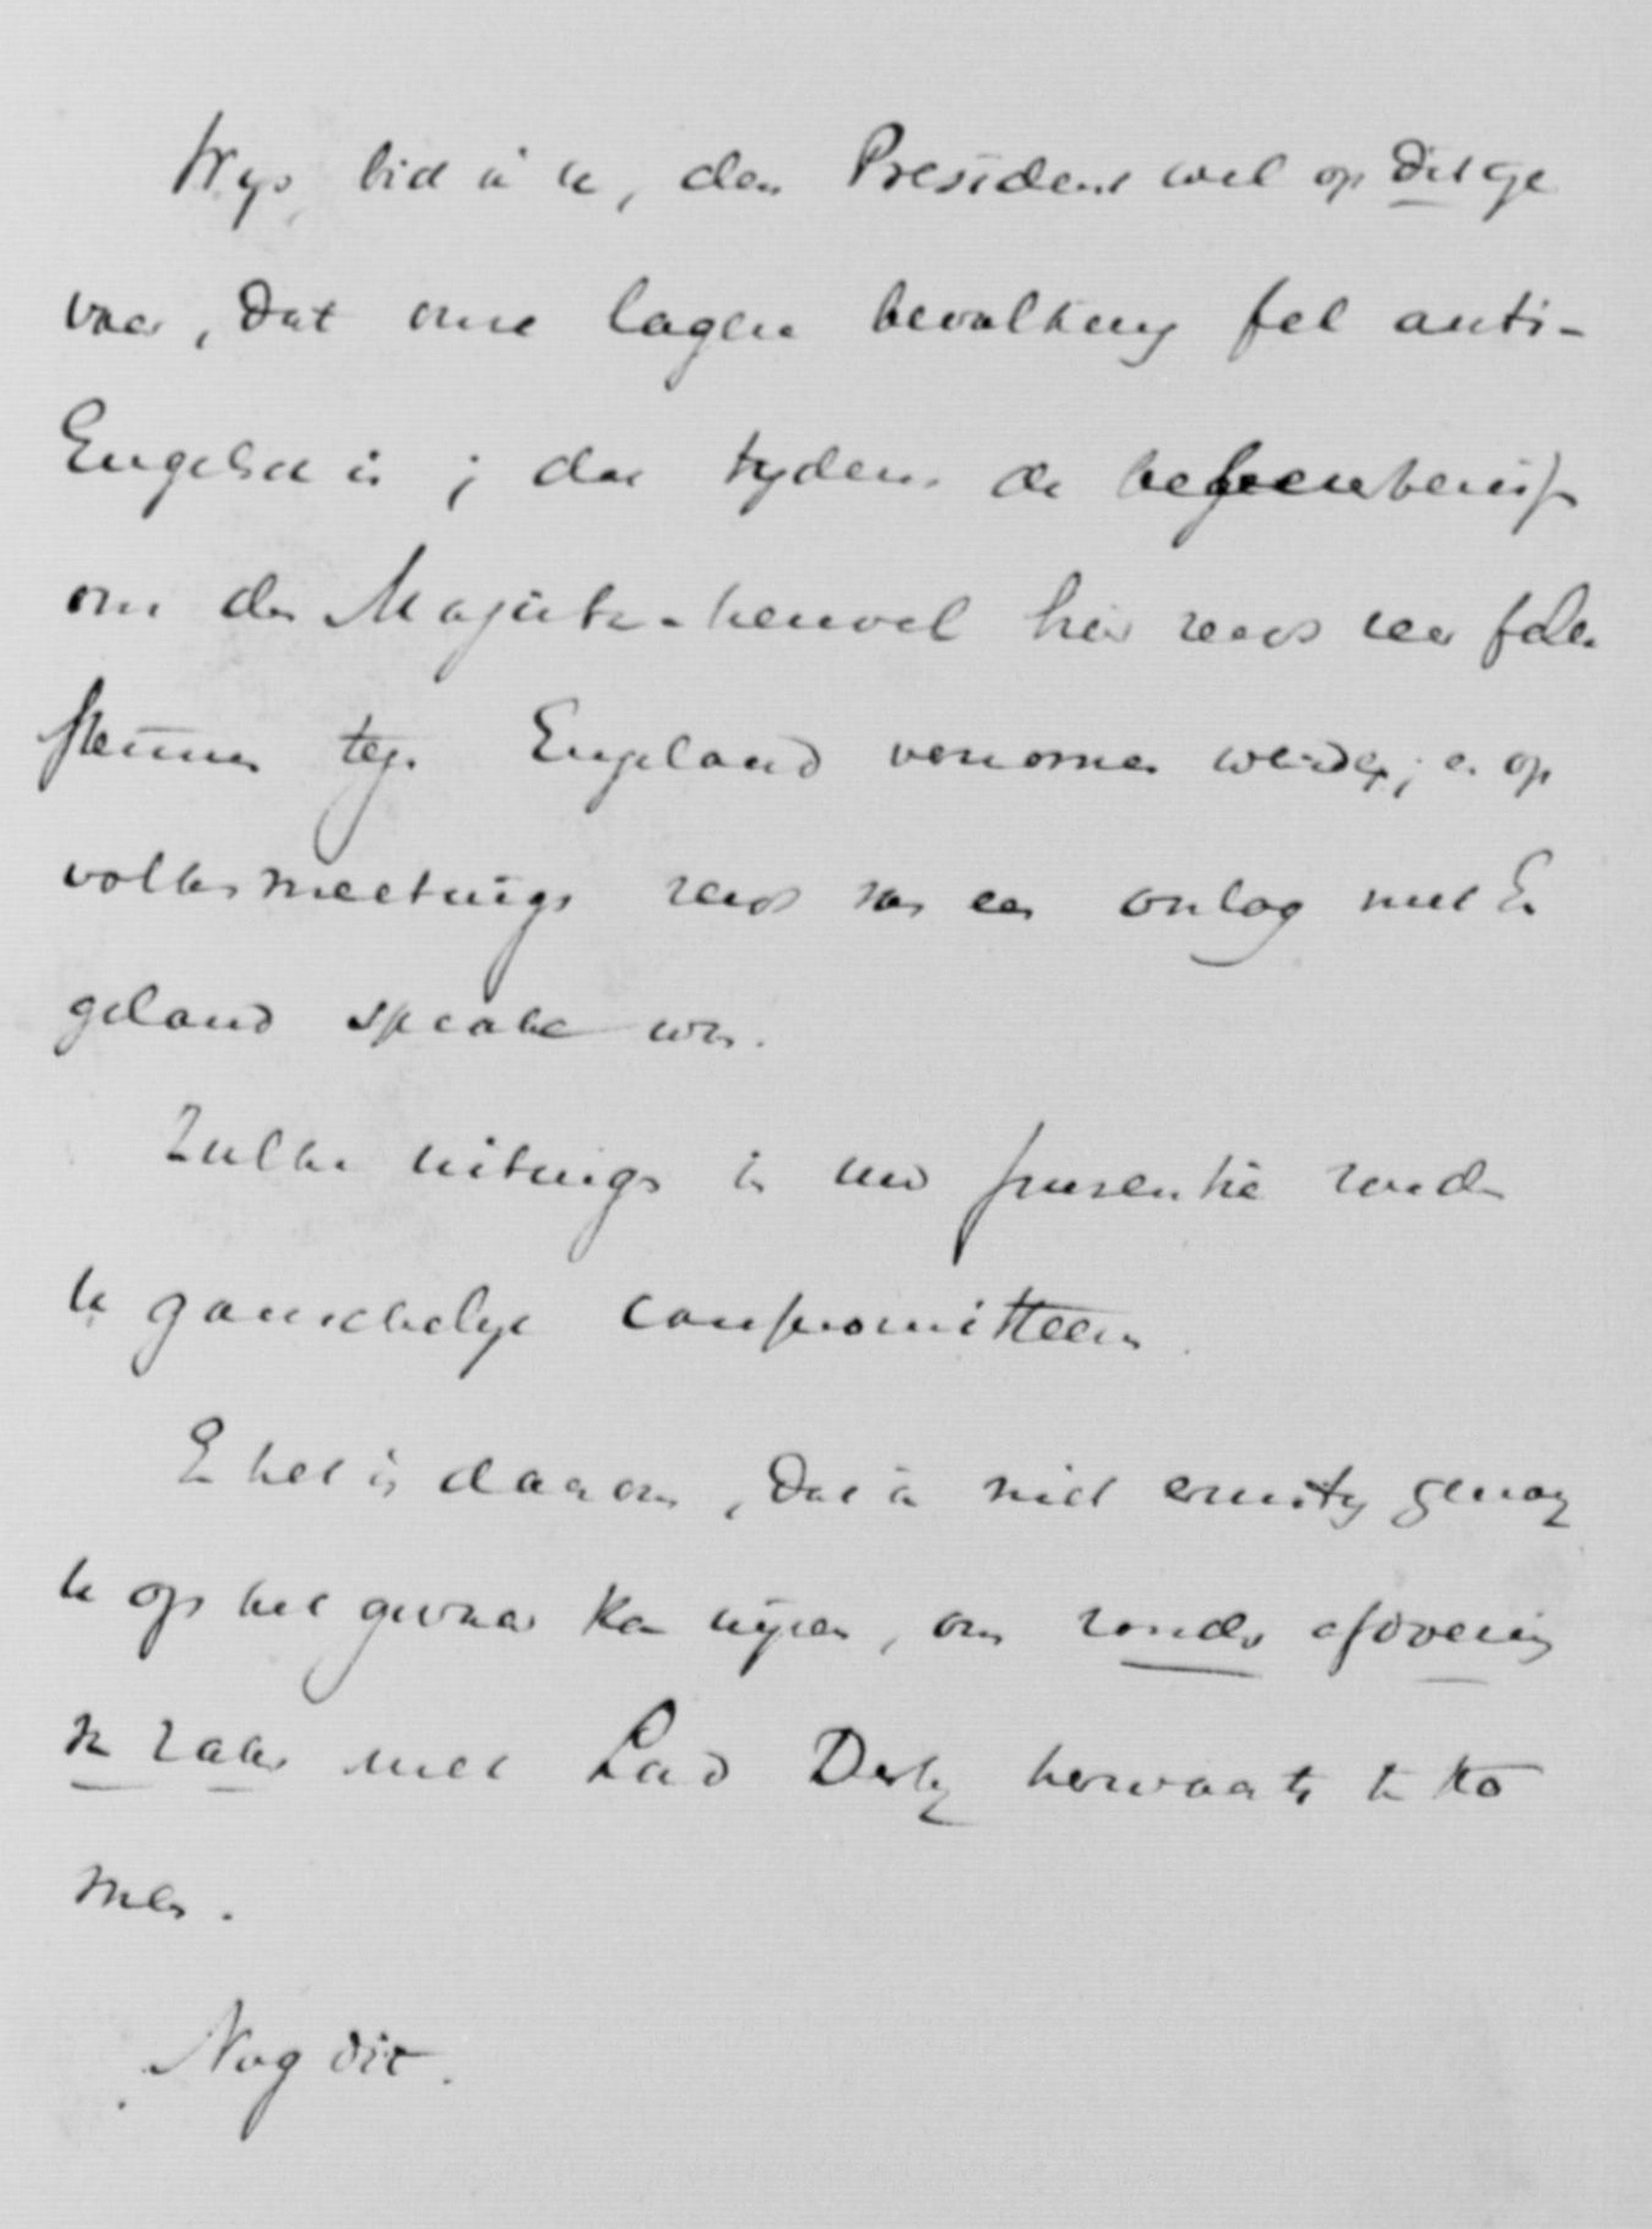 Wys, bid ik u, den President wel op dit ge
vaar, dat onze lagere bevolking fel anti-
Engelsch is; dat tydens de gebeurtenis
om den Majuba-heuvel hier reeds zeer felle
stemmen tegen England vernomen werden; en op
volksmeetings reeds van een oorlog met En
geland sprake was.
Zulke uitings in uw presentie zouden
u ganschelyk compromitteeren.
En het is daarom, dat ik niet ernstig genoeg
u op het gevaar kan wijzen, om zonder afdoening
van zaken met Lord Derby herwaarts te ko
men.
Nog dit.